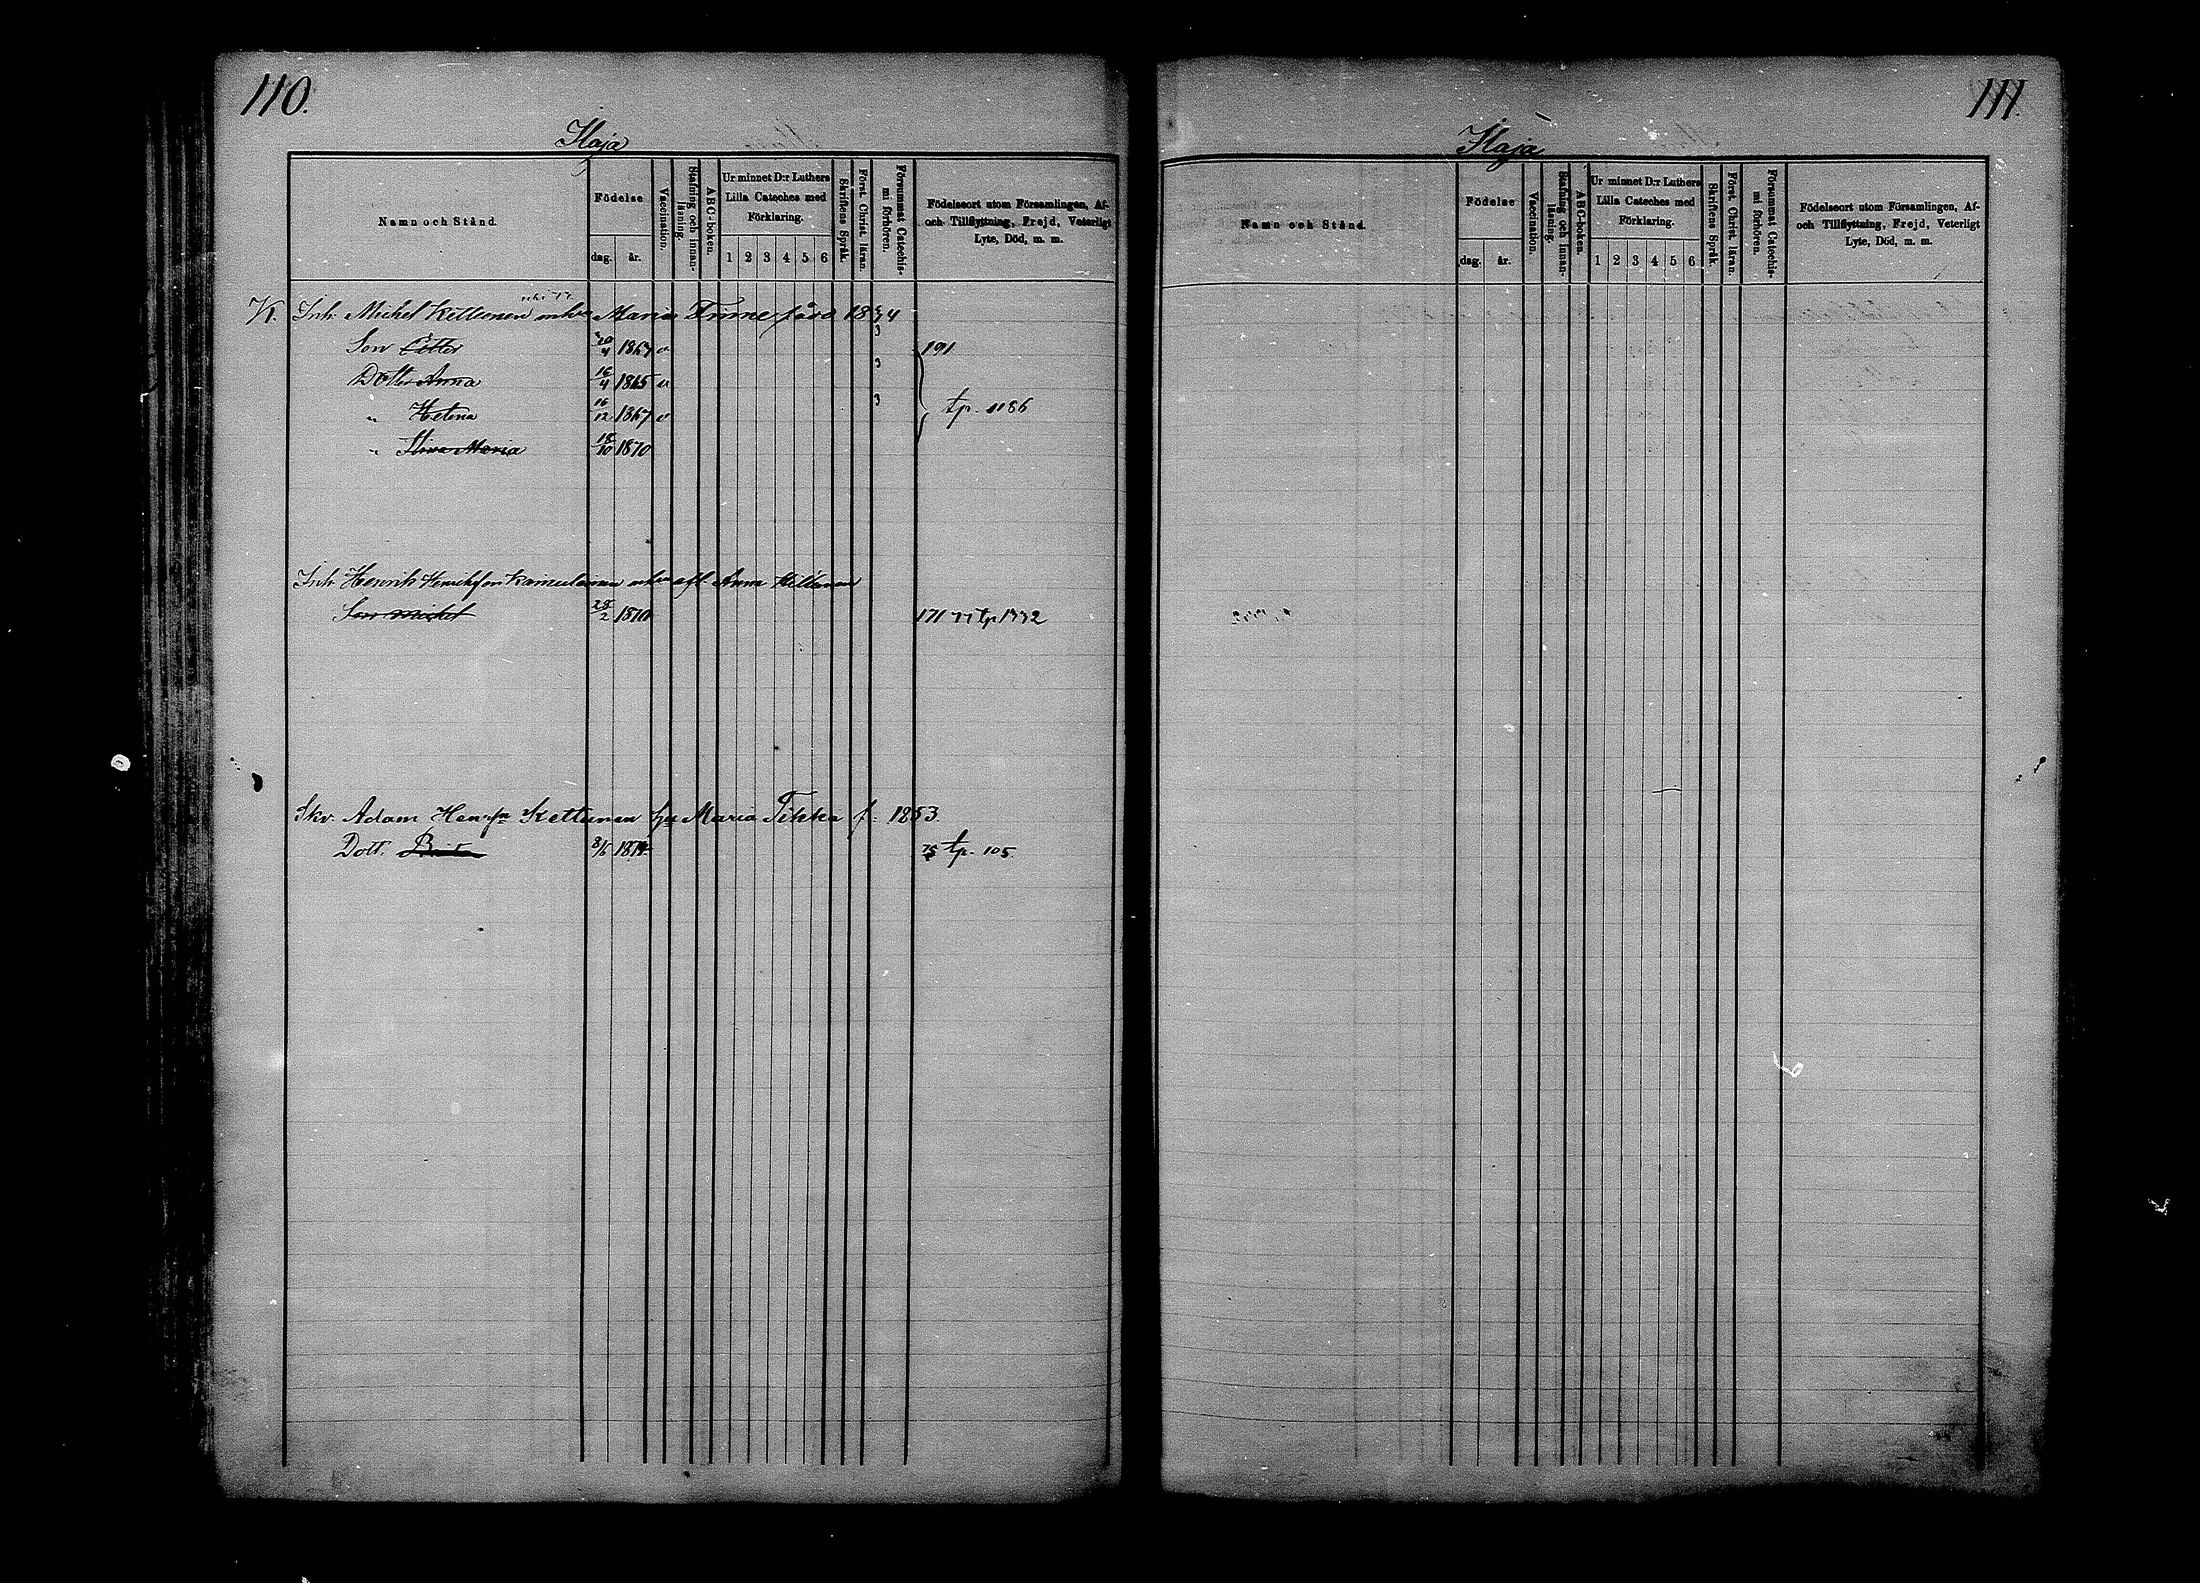 110.
Ilaja
Namn och Stånd.
Födelse
dag.
år.
Vaccination.
Stafning och innan-
läsning.
ABC-boken.
Ur minnet D:r Luthers
Lilla Cateches med
Förklaring.
1 2 3 4 5 6
Skriftens Språk.
Först. Christ. läran.
Försummat Catechis-
mi förhören.
Födelseort utom Församlingen, Af-
och Tillflyttning, Frejd, Veterligt
Lyte, Död, m. m.
K. Inh. Michel Kettunen Maria Tinne 1834
3
Son Petter 20/4 1867 v 191
3
Dotter Anna 16/4 1865 v
3
" Helena 16/12 1867 v tp. 1186
" Stina Maria 18/10 1870
Inh. Henrik Henriksson Anna Kettunen
Son Michel 28/2 1870 171 77 tp 1332
Skr. Adam Hen:sn Kettunen hu Maria Tikka f. 1853.
Dott. Brita 8/6 1874 75 tp. 105.
111.
Ilaja
Namn och Stånd.
Födelse
dag.
år.
Vaccination.
Stafning och innan-
läsning.
ABC-boken.
Ur minnet D:r Luthers
Lilla Cateches med
Förklaring.
1 2 3 4 5 6
Skriftens Språk.
Först. Christ. läran.
Försummat Catechis-
mi förhören.
Födelseort utom Församlingen, Af-
och Tillflyttning, Frejd, Veterligt
Lyte, Död, m. m.